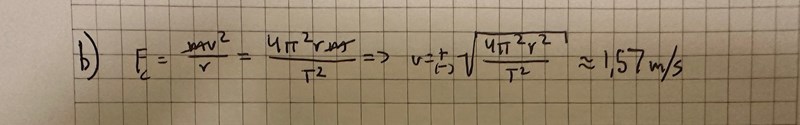 b) F_c = mv²/r = 4π²rm/T² => v = +(-) √(4π²r²/T²) ≈ 1,57 m/s